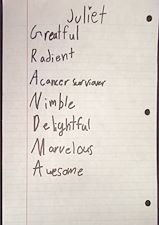 Juliet
Greatful
Radient
A cancer surviver
Nimble
Delightful
Marvelous
Awesome